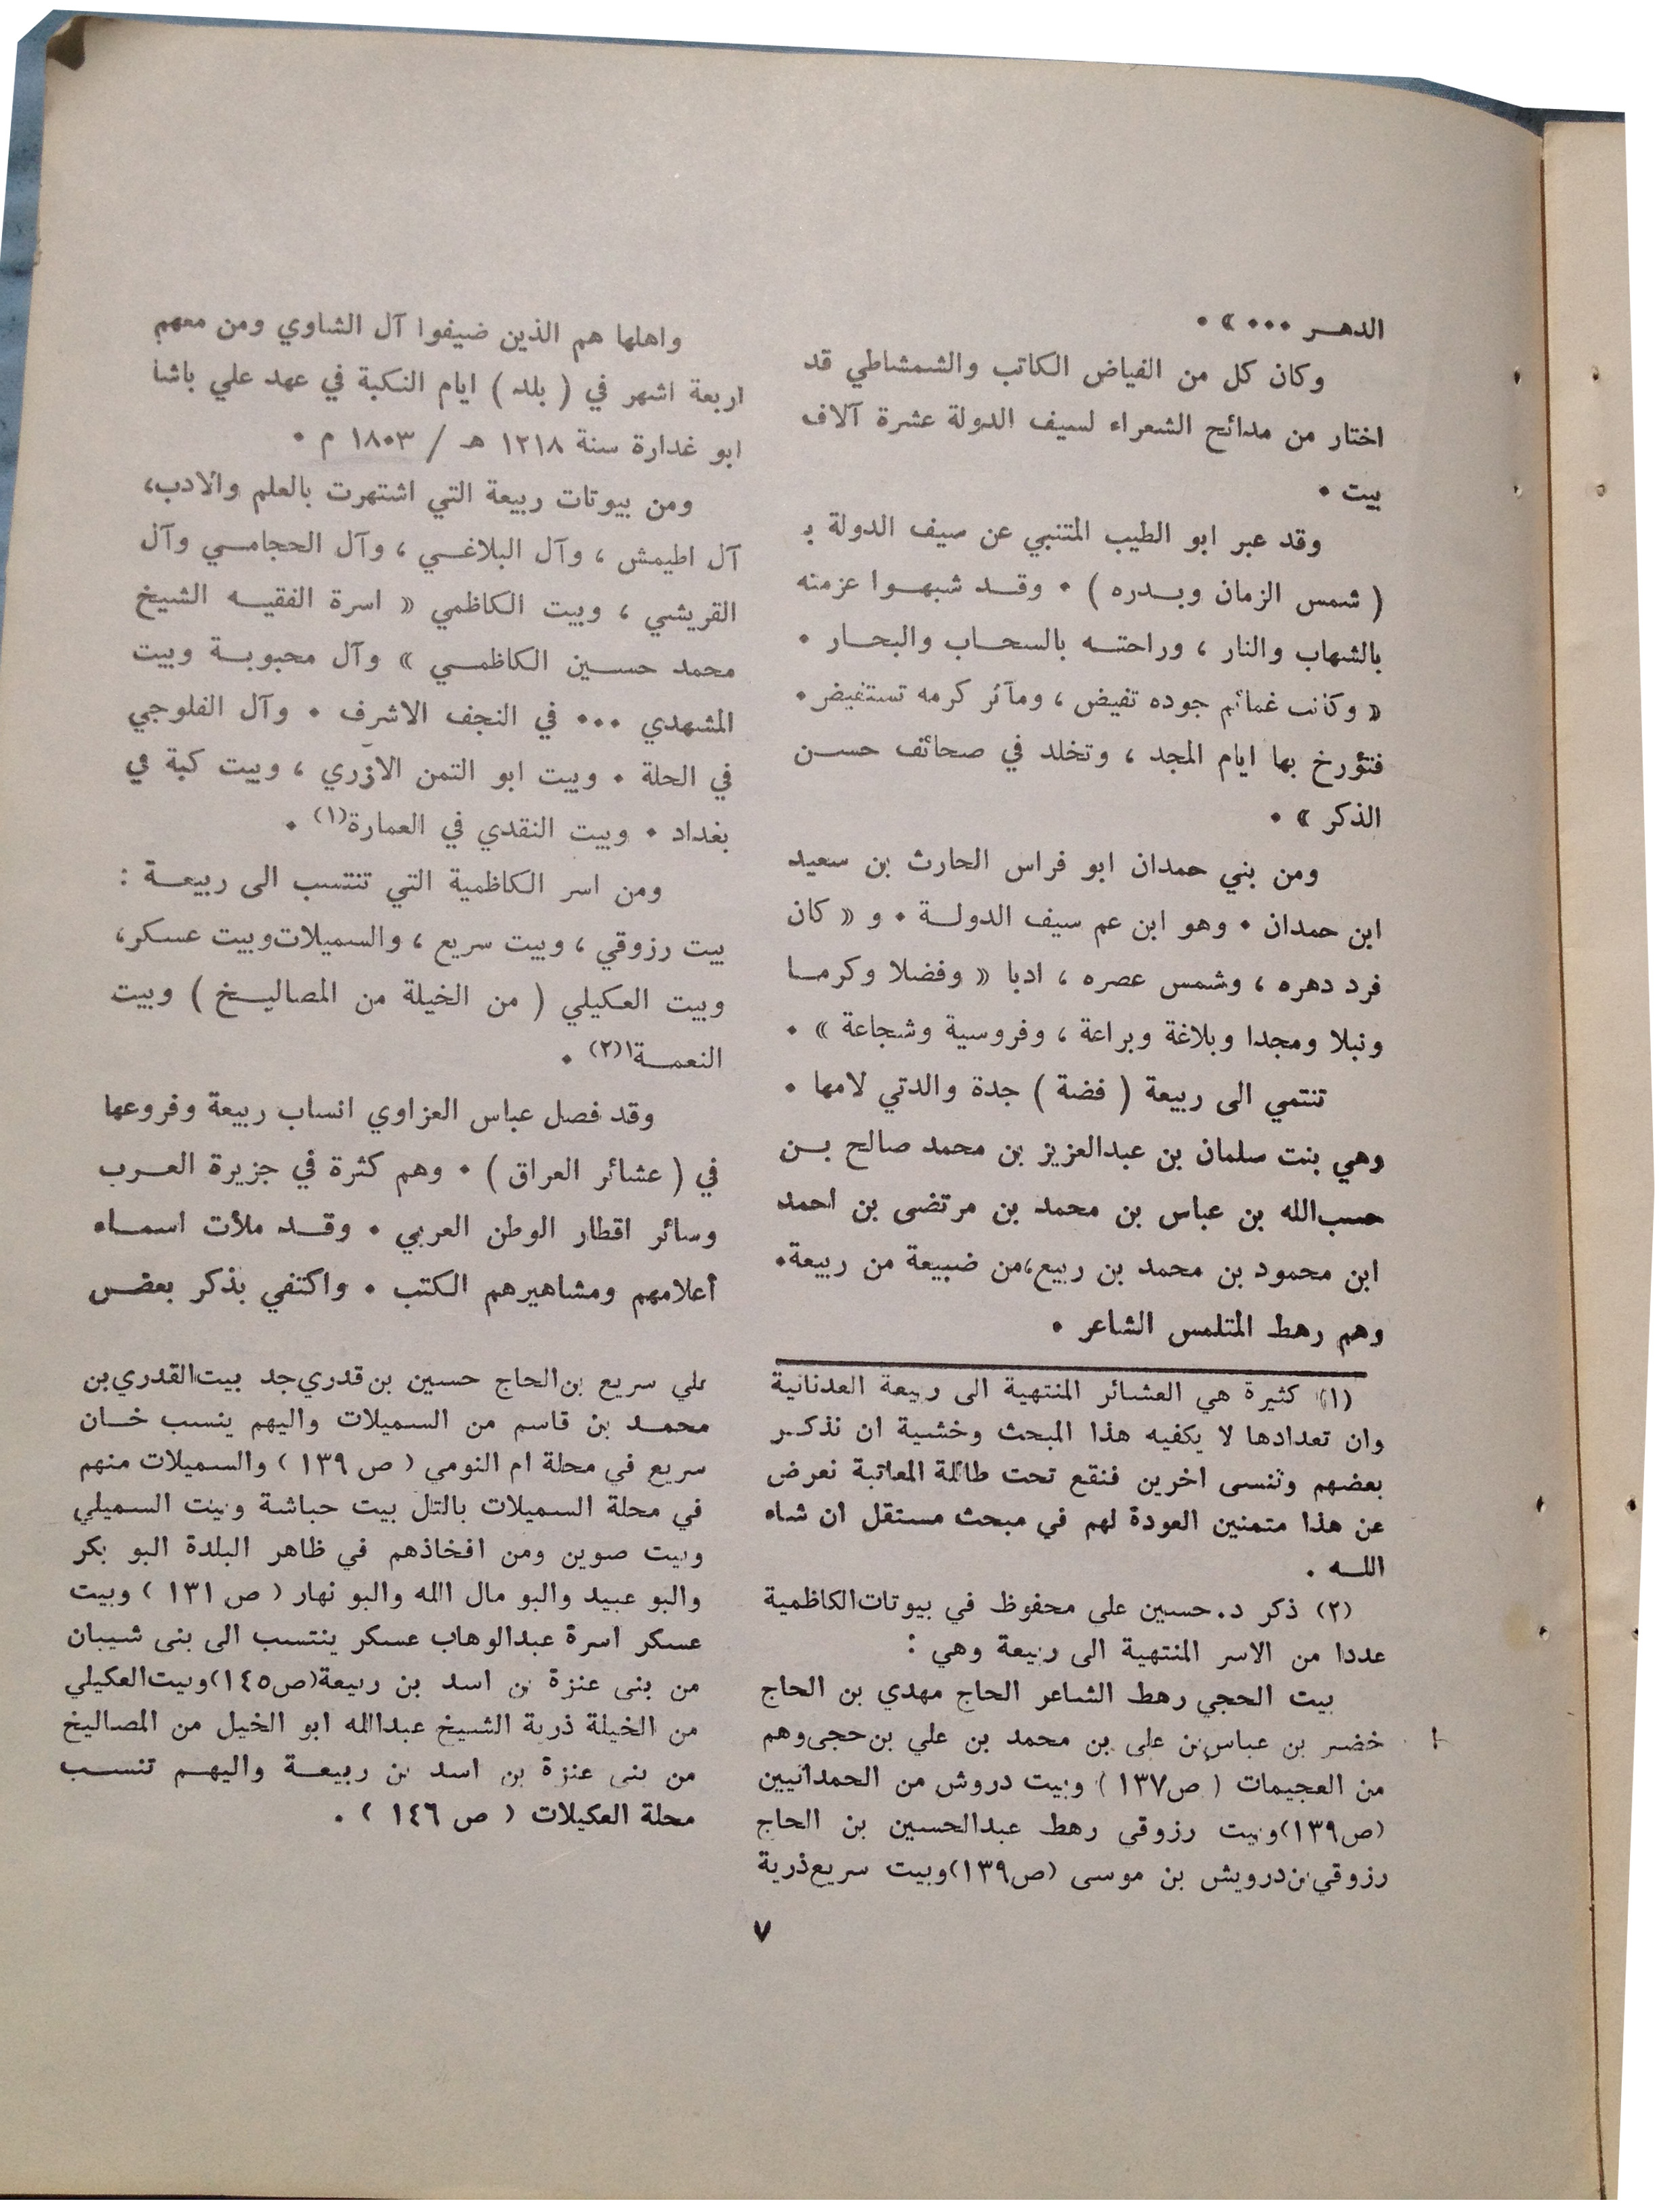 الدهــر ۰۰۰ » ۰
وكان كل من الفياض الكاتب والشمشاطي قد
اختار من مدائح الشعراء لسيف الدولة عشرة آلاف
بيت ۰
وقد عبر ابو الطيب المتنبي عن سيف الدولة بـ
( شمس الزمان وبــدره ) ۰ وقــد شبهــوا عزمته
بالشهاب والنار ، وراحتــه بالسحــاب والبحــار ۰
« وكانت غمائم جوده تفيض ، ومآثر كرمه تستفيض ۰
فتؤرخ بها ايام المجد ، وتخلد في صحائف حســن
الذكر » ۰
ومن بني حمدان ابو فراس الحارث بن سعيد
ابن حمدان ۰ وهو ابن عم سيف الدولــة ۰ و « كان
فرد دهره ، وشمس عصره ، ادبا « وفضلا وكرمــا
ونبلا ومجدا وبلاغة وبراعة ، وفروسية وشجاعة » ۰
تنتمي الى ربيعة ( فضة ) جدة والدتي لامها ۰
وهي بنت سلمان بن عبدالعزيز بن محمد صالح بــن
حسب‌الله بن عباس بن محمد بن مرتضى بن احمد
ابن محمود بن محمد بن ربيع،من ضبيعة من ربيعة۰
وهم رهط المتلمس الشاعر ۰
واهلها هم الذين ضيفوا آل الشاوي ومن معهم
اربعة اشهر في ( بلد ) ايام النكبة في عهد علي باشا
ابو غدارة سنة ١٢١٨ هـ / ١٨٠٣ م ۰
ومن بيوتات ربيعة التي اشتهرت بالعلم والادب،
آل اطيمش ، وآل البلاغــي ، وآل الحجامــي وآل
القريشي ، وبيت الكاظمي « اسرة الفقيــه الشيخ
محمد حســين الكاظمــي » وآل محبوبــة وبيت
المشهدي ۰۰۰ في النجف الاشرف ۰ وآل الفلوجي
في الحلة ۰ وبيت ابو التمن الازري ، وبيت كبة في
بغداد ۰ وبيت النقدي في العمارة(١) ۰
ومن اسر الكاظمية التي تنتسب الى ربيعــة :
بيت رزوقي ، وبيت سريع ، والسميلات‌وبيت عسكر،
وبيت العكيلي ( من الخيلة من المصاليــخ ) وبيت
النعمــة(٢) ۰
وقد فصل عباس العزاوي انساب ربيعة وفروعها
في ( عشائر العراق ) ۰ وهم كثرة في جزيرة العــرب
وسائر اقطار الوطن العربي ۰ وقــد ملأت اسمــاء
أعلامهم ومشاهيرهم الكتب ۰ واكتفي بذكر بعض
(١) كثيرة هي العشائر المنتهية الى ربيعة العدنانية
وان تعدادها لا يكفيه هذا المبحث وخشية ان نذكــر
بعضهم وننسى اخرين فنقع تحت طائلة المعاتبة نعرض
عن هذا متمنين العودة لهم في مبحث مستقل ان شاء
اللــه .
(٢) ذكر د. حسين علي محفوظ في بيوتات‌الكاظمية
عددا من الاسر المنتهية الى ربيعة وهي :
بيت الحجي رهط الشاعر الحاج مهدي بن الحاج
خضر بن عباس‌بن على بن محمد بن علي بن‌حجى‌وهم
من العجيمات ( ص١٣٧ ) وبيت دروش من الحمدانيين
(ص١٣٩)وبيت رزوقي رهط عبدالحسين بن الحاج
رزوقي‌بن‌درويش بن موسى (ص١٣٩)وبيت سريع‌ذرية
علي سريع بن‌الحاج حسين بن‌قدري‌جد بيت‌القدري‌بن
محمــد بن قاسم من السميلات واليهم ينسب خــان
سريع في محلة ام النومي ( ص ١٣٩ ) والسميلات منهم
في محلة السميلات بالتل بيت حباشة وبيت السميلي
وبيت صوين ومن افخاذهم في ظاهر البلدة البو بكر
والبو عبيد والبو مال الله والبو نهار ( ص ١٣١ ) وبيت
عسكر اسرة عبدالوهاب عسكر ينتسب الى بنى شيبان
من بنى عنزة بن اسد بن ربيعة(ص١٤٥)وبيت‌العكيلي
من الخيلة ذرية الشيخ عبدالله ابو الخيل من المصاليخ
من بنى عنزة بن اسد بن ربيعــة واليهــم تنســب
محلة العكيلات ( ص ١٤٦ ) .
٧